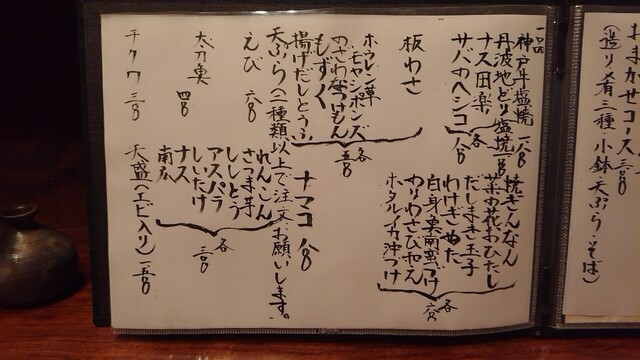 おまかせコース
(造り肴三種 小鉢 天ぷら・そば)
一品
神戸牛塩焼 一八〇〇
丹波地どり塩焼 一〇〇〇
ナス田楽
サバのヘシコ
各 八〇〇
焼ぎんなん
菜の花おひたし
だしまき玉子
わけぎぬた
白身魚南蛮づけ
のりわさびやっこ
ホタルイカ沖づけ
各 六〇〇
板わさ
ホウレン草
モヤシポンズ
のざわなつけもん
もずく
揚げだしとうふ
各 五〇〇
ナマコ 八〇〇
天ぷら(二種類以上で注文お願いします。
えび 六〇〇
れんこん
さつま芋
ししとう
アスパラ
しいたけ
ナス
南瓜
各 三〇〇
太刀魚 四〇〇
チクワ 三〇〇
天盛(エビ入り) 一五〇〇